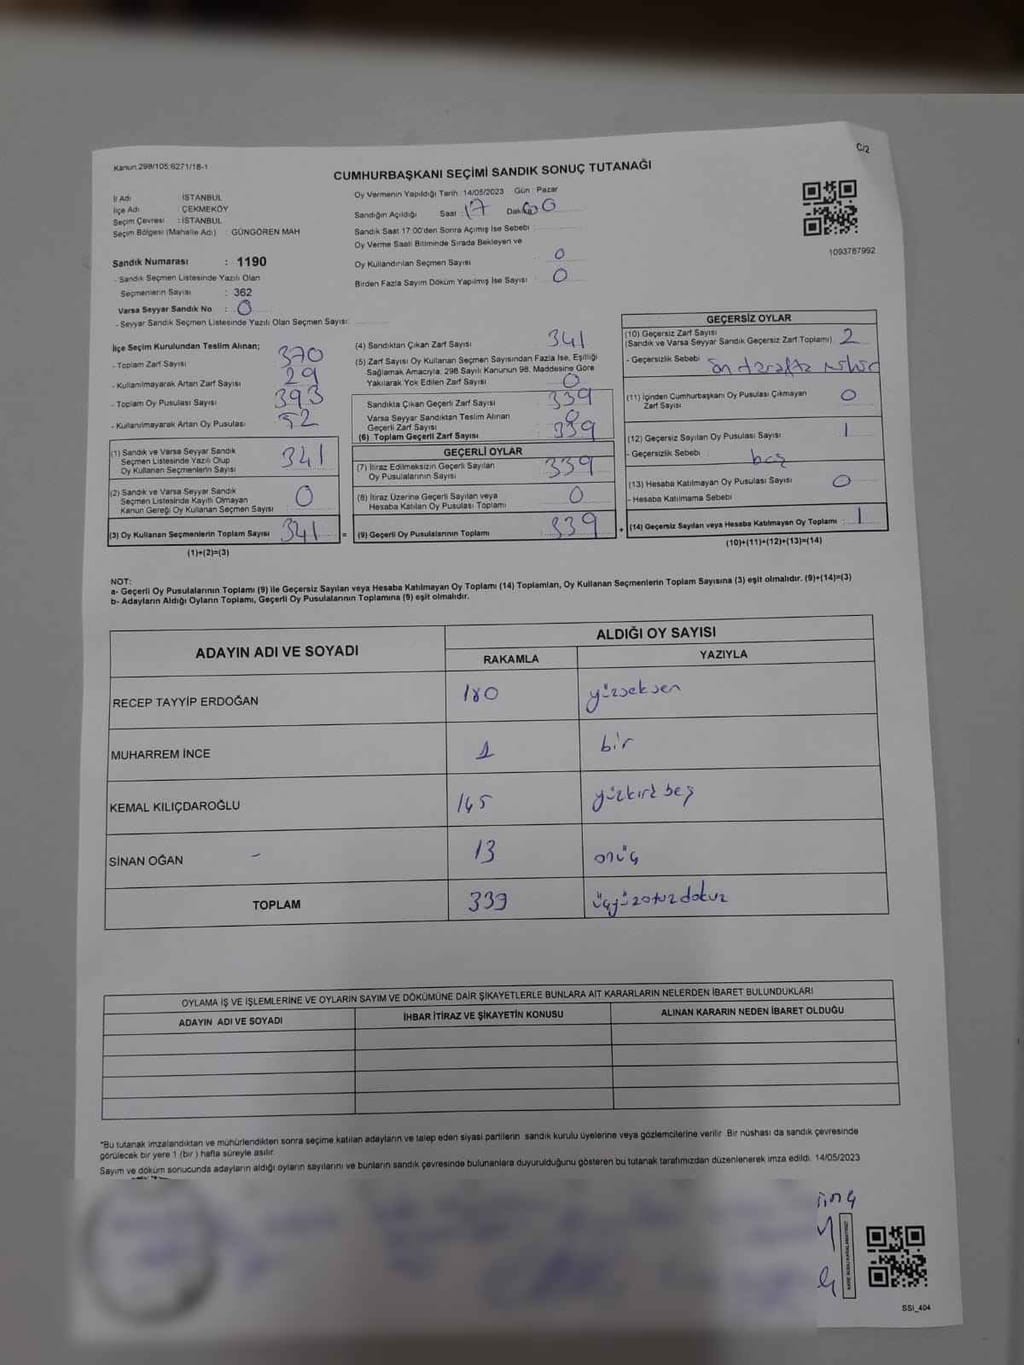 Kanun:298/105:6271/18-1
C/2
CUMHURBAŞKANI SEÇİMİ SANDIK SONUÇ TUTANAĞI
İl Adı : İSTANBUL
İlçe Adı : ÇEKMEKÖY
Seçim Çevresi : İSTANBUL
Seçim Bölgesi (Mahalle Adı) : GÜNGÖREN MAH
Sandık Numarası : 1190
- Sandık Seçmen Listesinde Yazılı Olan
Seçmenlerin Sayısı : 362
Varsa Seyyar Sandık No : 0
- Seyyar Sandık Seçmen Listesinde Yazılı Olan Seçmen Sayısı:
Oy Vermenin Yapıldığı Tarih: 14/05/2023 Gün: Pazar
Sandığın Açıldığı Saat : 17 Dakika 00
Sandık Saat 17:00'den Sonra Açılmış İse Sebebi
Oy Verme Saati Bitiminde Sırada Bekleyen ve
Oy Kullandırılan Seçmen Sayısı 0
Birden Fazla Sayım Döküm Yapılmış İse Sayısı 0
1093787992
İlçe Seçim Kurulundan Teslim Alınan;
- Toplam Zarf Sayısı 370
- Kullanılmayarak Artan Zarf Sayısı 29
- Toplam Oy Pusulası Sayısı 393
- Kullanılmayarak Artan Oy Pusulası 52
(1) Sandık ve Varsa Seyyar Sandık
Seçmen Listesinde Yazılı Olup
Oy Kullanan Seçmenlerin Sayısı 341
(2) Sandık ve Varsa Seyyar Sandık
Seçmen Listesinde Kayıtlı Olmayan
Kanun Gereği Oy Kullanan Seçmen Sayısı 0
(3) Oy Kullanan Seçmenlerin Toplam Sayısı 341 =
(1)+(2)=(3)
(4) Sandıktan Çıkan Zarf Sayısı 341
(5) Zarf Sayısı Oy Kullanan Seçmen Sayısından Fazla İse, Eşitliği
Sağlamak Amacıyla, 298 Sayılı Kanunun 98. Maddesine Göre
Yakılarak Yok Edilen Zarf Sayısı 0
Sandıkta Çıkan Geçerli Zarf Sayısı 339
Varsa Seyyar Sandıktan Teslim Alınan
Geçerli Zarf Sayısı 0
(6) Toplam Geçerli Zarf Sayısı 339
GEÇERLİ OYLAR
(7) İtiraz Edilmeksizin Geçerli Sayılan
Oy Pusulalarının Sayısı 339
(8) İtiraz Üzerine Geçerli Sayılan veya
Hesaba Katılan Oy Pusulası Toplamı 0
(9) Geçerli Oy Pusulalarının Toplamı 339 +
GEÇERSİZ OYLAR
(10) Geçersiz Zarf Sayısı
(Sandık ve Varsa Seyyar Sandık Geçersiz Zarf Toplamı) 2
- Geçersizlik Sebebi
(11) İçinden Cumhurbaşkanı Oy Pusulası Çıkmayan
Zarf Sayısı 0
(12) Geçersiz Sayılan Oy Pusulası Sayısı 1
- Geçersizlik Sebebi boş
(13) Hesaba Katılmayan Oy Pusulası Sayısı 0
- Hesaba Katılmama Sebebi
(14) Geçersiz Sayılan veya Hesaba Katılmayan Oy Toplamı : 1
(10)+(11)+(12)+(13)=(14)
NOT:
a- Geçerli Oy Pusulalarının Toplamı (9) ile Geçersiz Sayılan veya Hesaba Katılmayan Oy Toplamı (14) Toplamları, Oy Kullanan Seçmenlerin Toplam Sayısına (3) eşit olmalıdır. (9)+(14)=(3)
b- Adayların Aldığı Oyların Toplamı, Geçerli Oy Pusulalarının Toplamına (9) eşit olmalıdır.
ADAYIN ADI VE SOYADI
ALDIĞI OY SAYISI
RAKAMLA YAZIYLA
RECEP TAYYİP ERDOĞAN 180 yüzseksen
MUHARREM İNCE 1 bir
KEMAL KILIÇDAROĞLU 145 yüzkırk beş
SİNAN OĞAN - 13 onüç
TOPLAM 339 üçyüzotuzdokuz
OYLAMA İŞ VE İŞLEMLERİNE VE OYLARIN SAYIM VE DÖKÜMÜNE DAİR ŞİKAYETLERLE BUNLARA AİT KARARLARIN NELERDEN İBARET BULUNDUKLARI
ADAYIN ADI VE SOYADI İHBAR İTİRAZ VE ŞİKAYETİN KONUSU ALINAN KARARIN NEDEN İBARET OLDUĞU
*Bu tutanak imzalandıktan ve mühürlendikten sonra seçime katılan adayların ve talep eden siyasi partilerin sandık kurulu üyelerine veya gözlemcilerine verilir. Bir nüshası da sandık çevresinde
görülecek bir yere 1 (bir) hafta süreyle asılır.
Sayım ve döküm sonucunda adayların aldığı oyların sayılarını ve bunların sandık çevresinde bulunanlara duyurulduğunu gösteren bu tutanak tarafımızdan düzenlenerek imza edildi. 14/05/2023
SSI_404